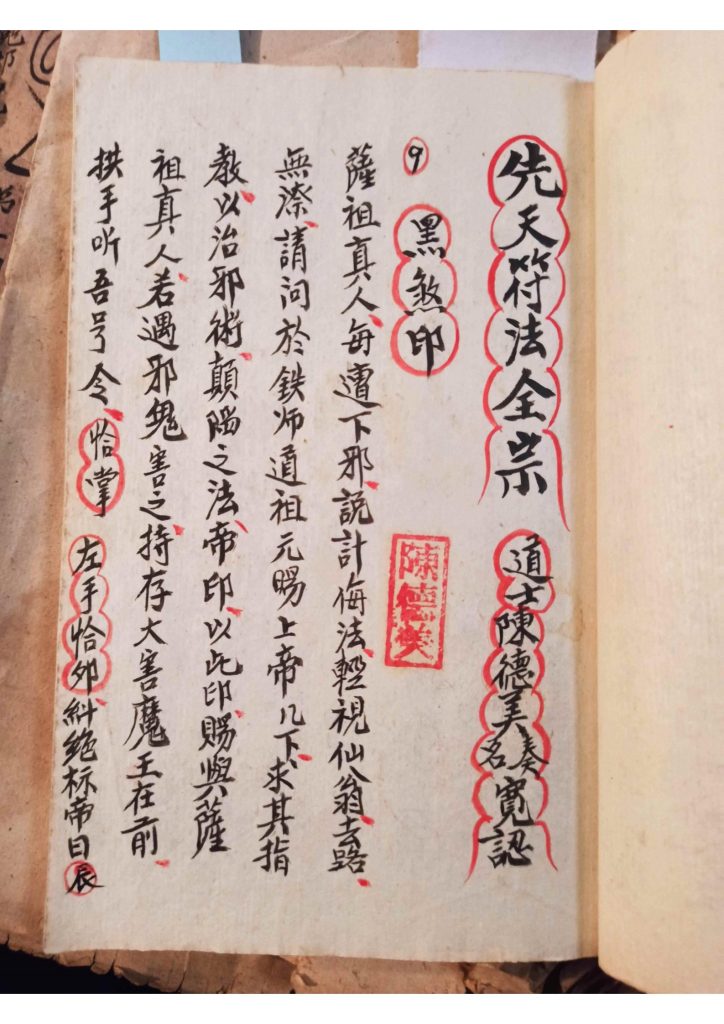 先天符法全宗 道士陳德美奏名寬認
9 黑煞印
陳德美
薩祖真人每遭下邪説計侮法輕視仙翁去路
無漈請问於鉄师道祖元賜上帝几下求其指
教以治邪術顛陷之法帝印以此印賜與薩
祖真人若遇邪鬼害之持存大害魔王在前
拱手听吾号令恰掌 左手恰夘糾絶标帝日辰